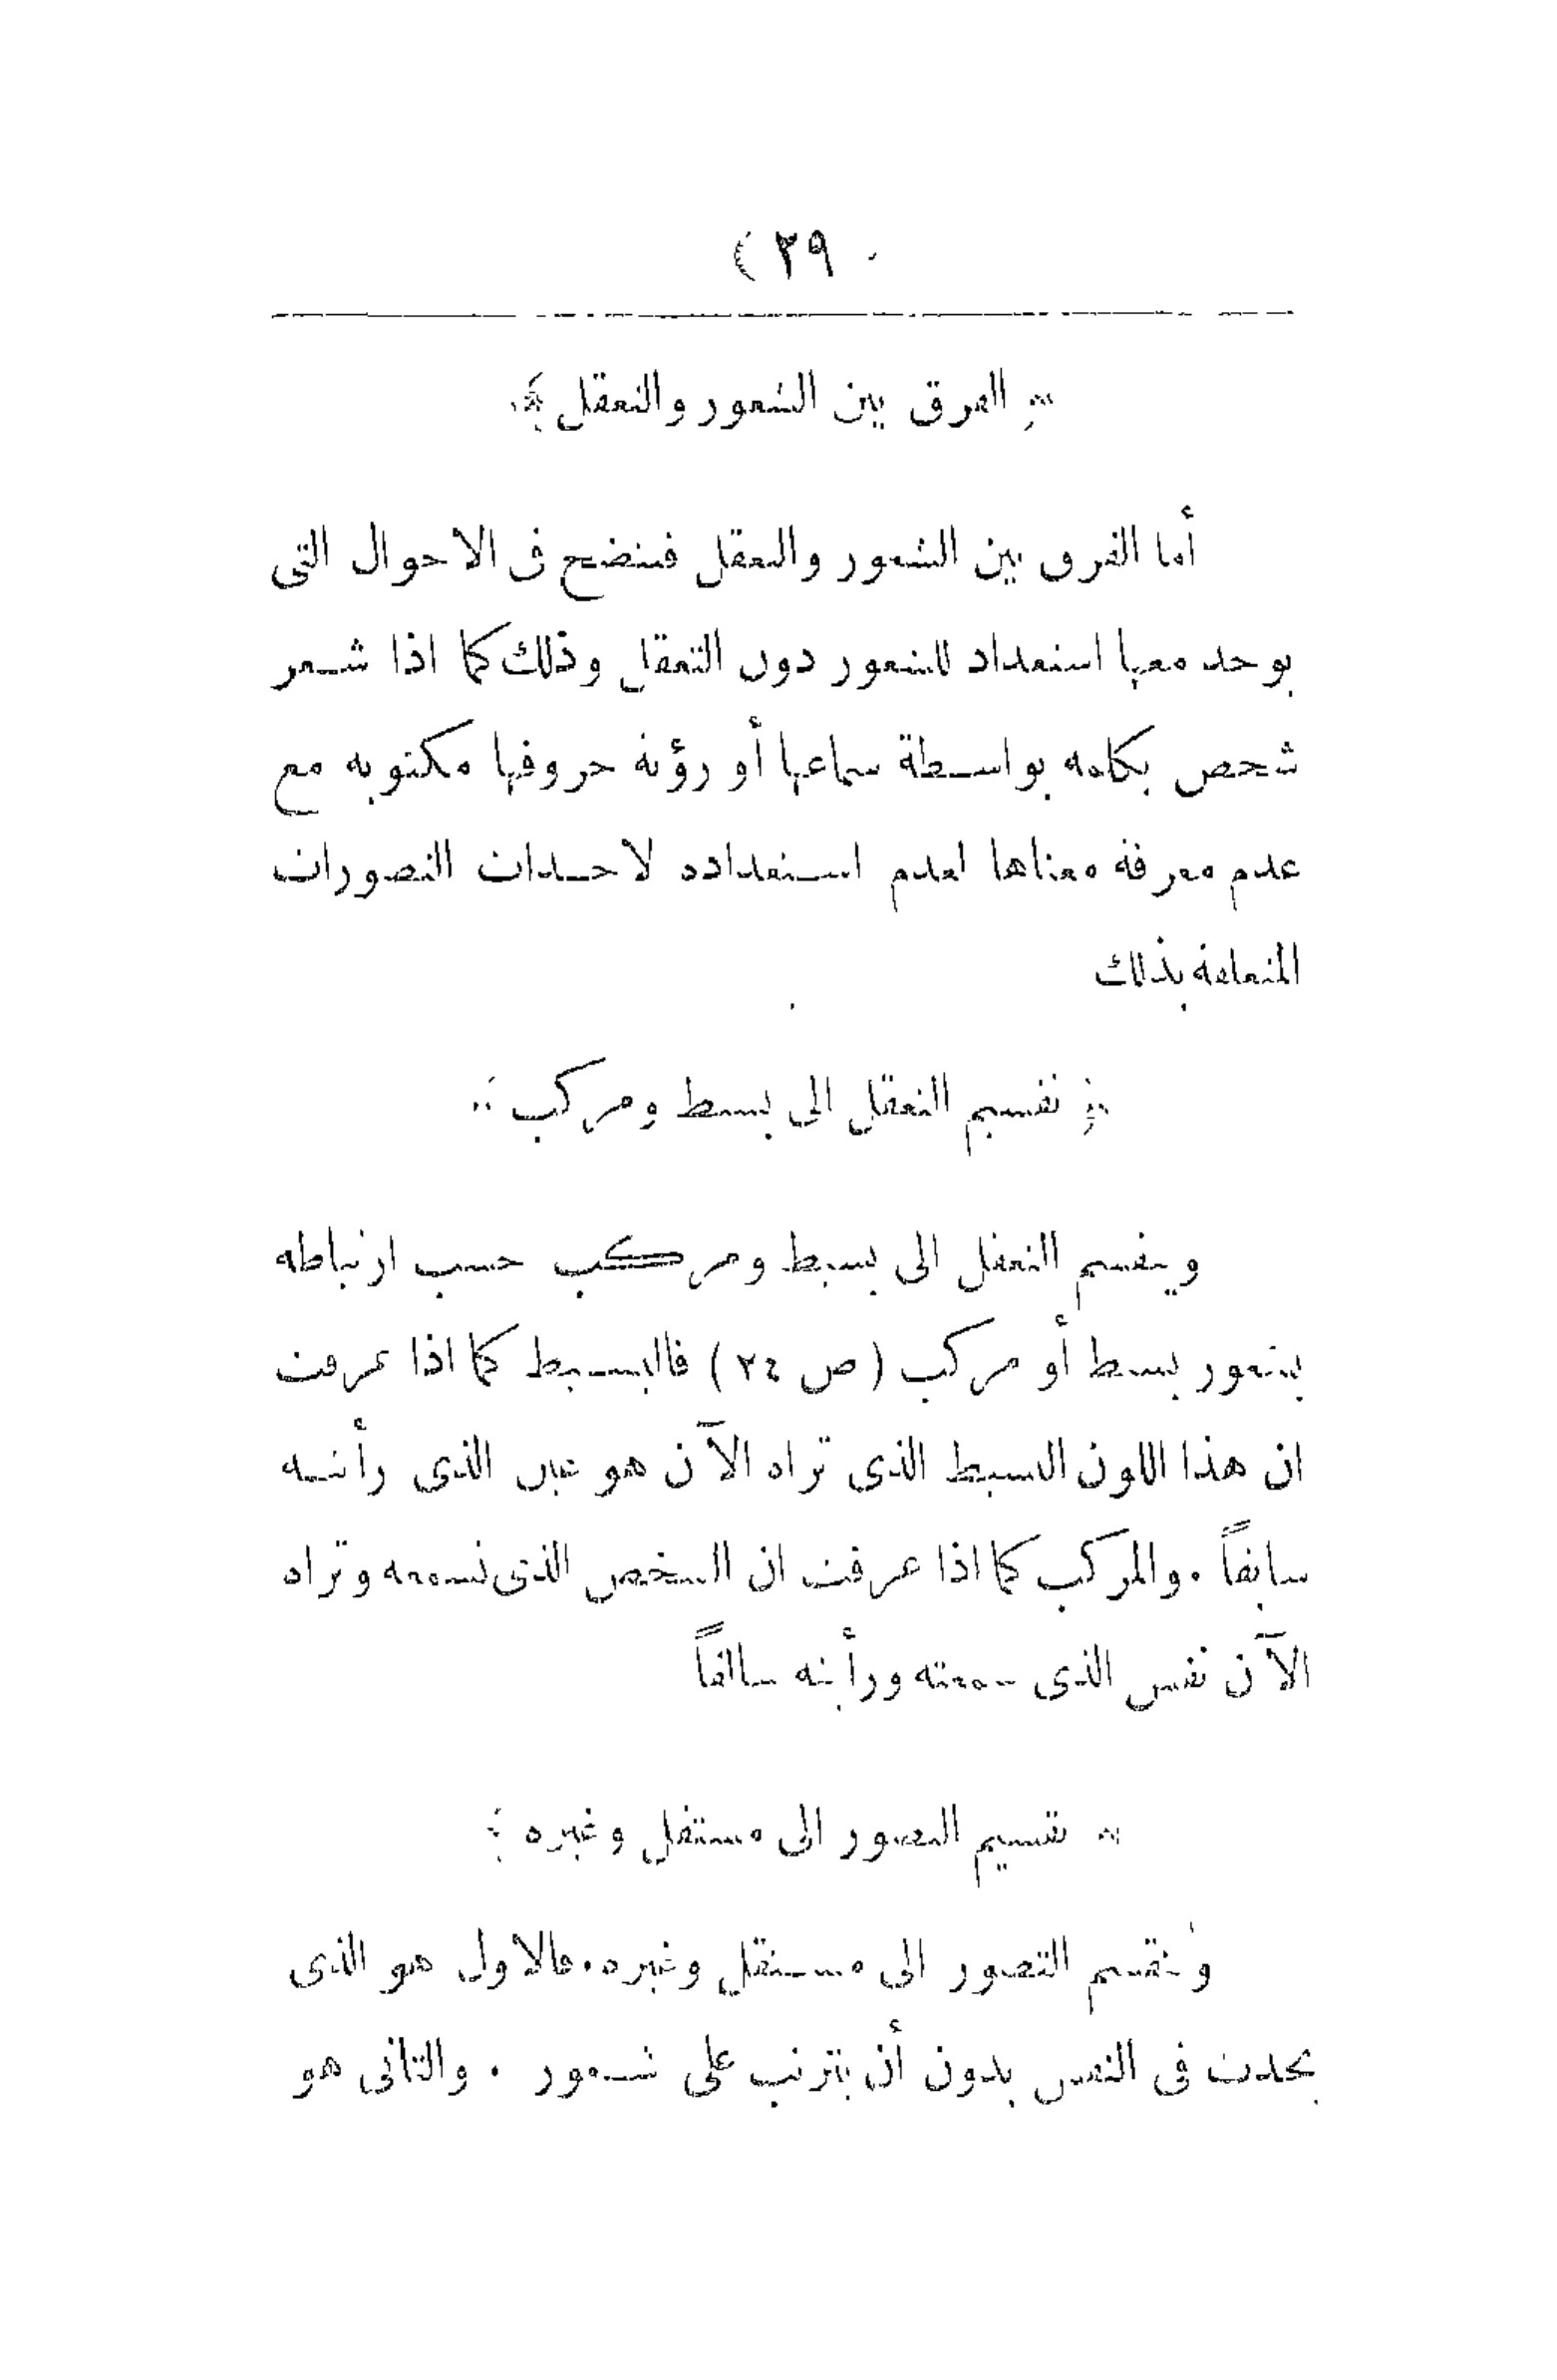 ( ٢٩ )
﴿ الفرق بين الشعور والتعقل ﴾
أما الفرق بين الشعور والتعقل فيتضح فى الاحوال التى
يوجد معها استعداد للشعور دون التعقل وذلك كما اذا شعر
شخص بكلمة بواسطة سماعها أو رؤية حروفها مكتوبة مع
عدم معرفة معناها لعدم استعداده لاحداث التصورات
المتعلقة بذلك
﴿ تقسيم التعقل الى بسيط ومركب ﴾
وينقسم التعقل الى بسيط ومركب حسب ارتباطه
بشعور بسيط أو مركب ( ص ٢٤ ) فالبسيط كما اذا عرفت
ان هذا اللون البسيط الذى تراه الآن هو عين الذى رأيته
سابقاً . والمركب كما اذا عرفت ان الشخص الذى تسمعه وتراه
الآن نفس الذى سمعته ورأيته سالفاً
﴿ تقسيم التصور الى مستقل وغيره ﴾
وينقسم التصور الى مستقل وغيره . فالاول هو الذى
يحدث فى النفس بدون أن يترتب على شعور . والثانى هو